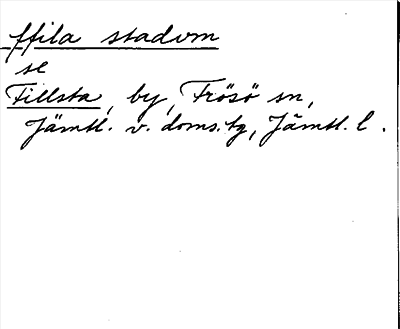 ffila stadum
se
Fillsta, by, Frösö sn,
Jämtl. v. doms.tg, Jämtl. l.